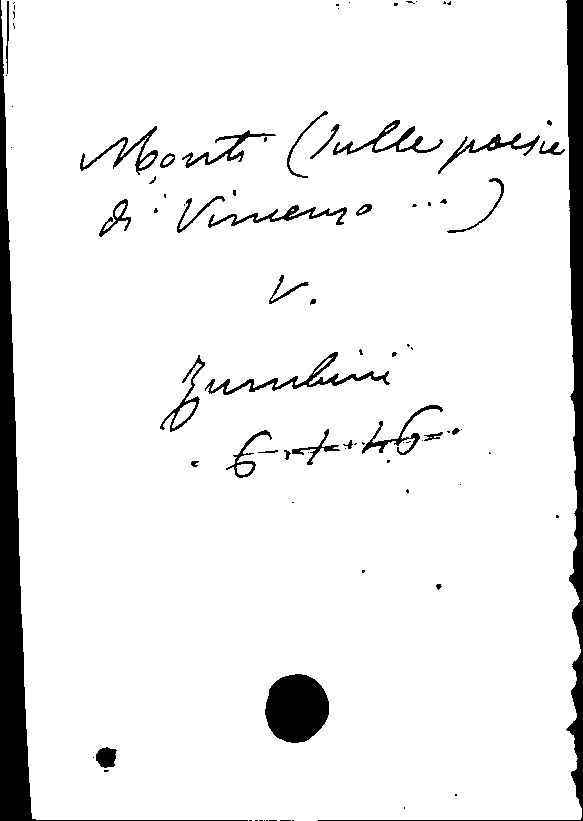 Monti (Sulle poesie
di Vincenzo ...)
V.
Zumbini